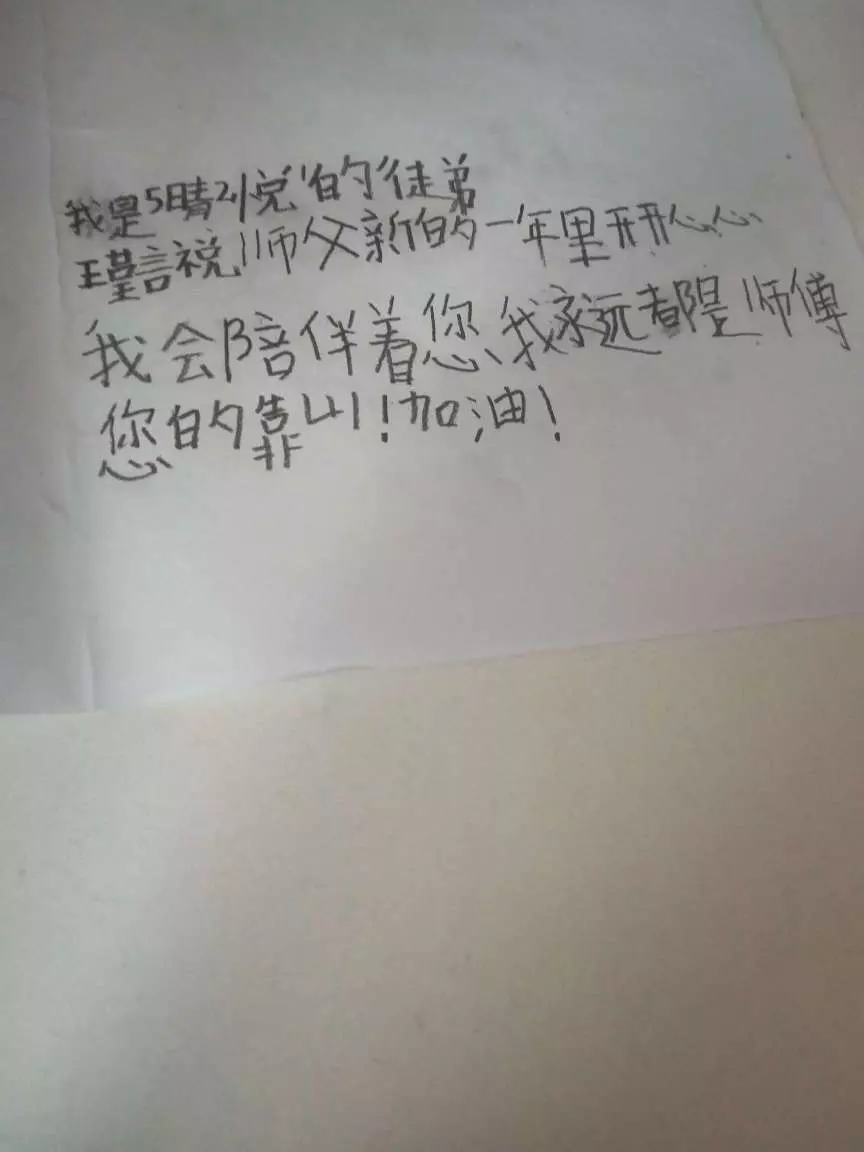 我是5晴21悦的徒弟
王瑾言祝师父新的一年里开开心心
我会陪伴着您、我永远都是师傅
您的靠山!加油!